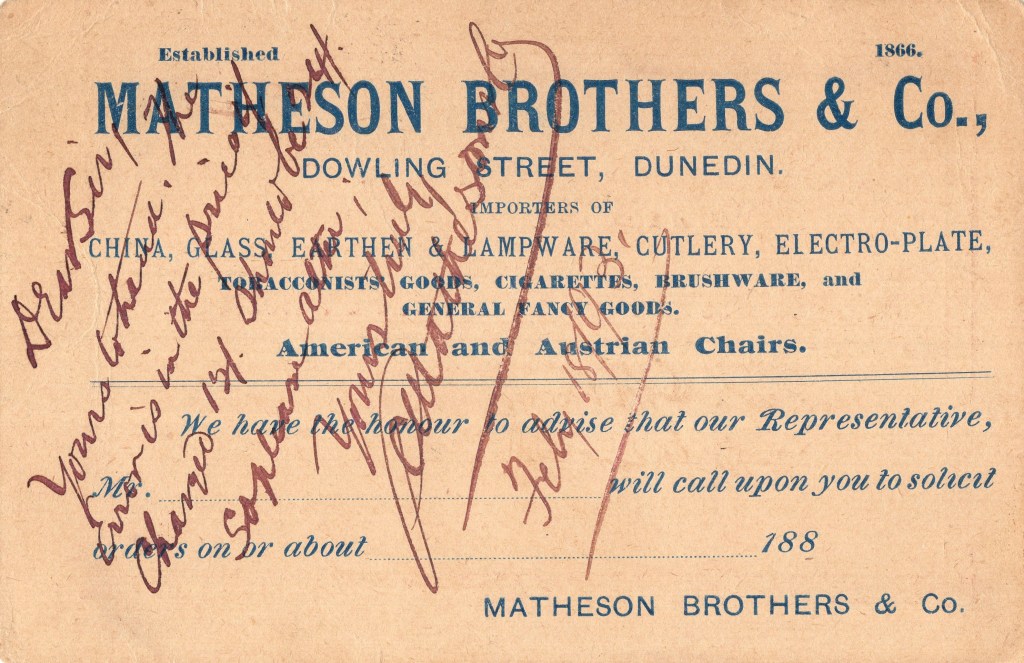 Established 1866.
MATHESON BROTHERS & Co.,
DOWLING STREET, DUNEDIN.
IMPORTERS OF
CHINA, GLASS, EARTHEN & LAMPWARE, CUTLERY, ELECTRO-PLATE,
TOBACCONISTS' GOODS, CIGARETTES, BRUSHWARE, and
GENERAL FANCY GOODS.
American and Austrian Chairs.
We have the honour to advise that our Representative,
Mr. will call upon you to solicit
orders on or about 188
MATHESON BROTHERS & Co.
Dear Sir,
Yours to hand, the
Error is in the price
Charged 1/- should be
So please alter,
Yours truly
Matheson
Feby 18/93.